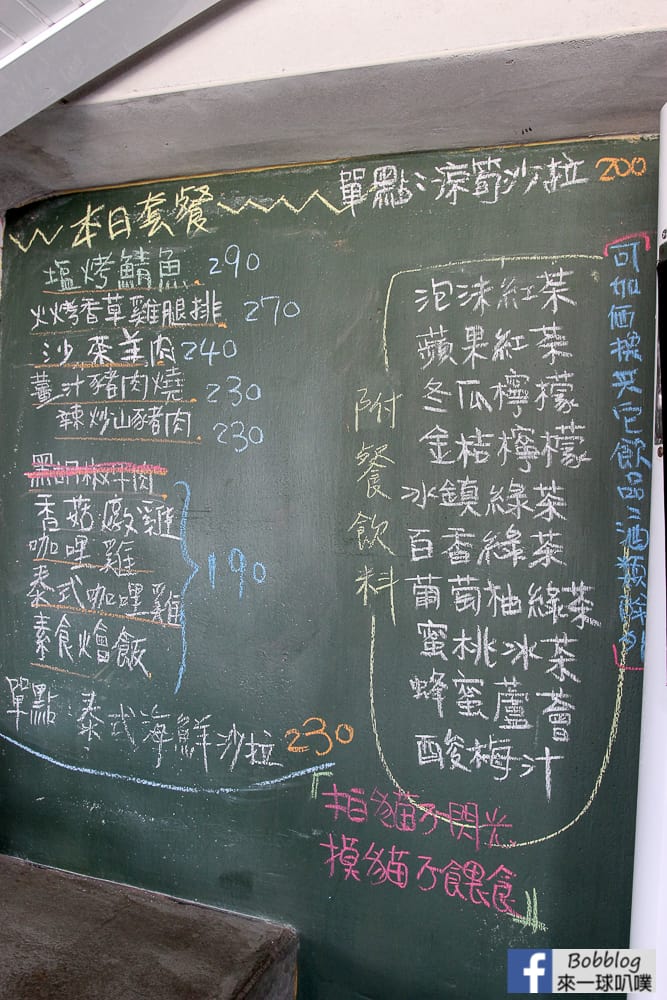 單點：涼筍沙拉 200
本日套餐
塩烤鯖魚.290
火烤香草雞腿排.270
沙茶羊肉240
薑汁豬肉燒.230
辣炒山豬肉.230
黑胡椒牛肉
香菇燉雞
咖哩雞
泰式咖哩雞
素食燴飯
190
單點：泰式海鮮沙拉 230
附餐飲料
泡沫紅茶
蘋果紅茶
冬瓜檸檬
金桔檸檬
冰鎮綠茶
百香綠茶
葡萄柚綠茶
蜜桃冰茶
蜂蜜蘆薈
酸梅汁
可加價換其它飲品：酒類除外
『拍貓不閃光
摸貓不餵食』
f Bobblog
來一球叭噗